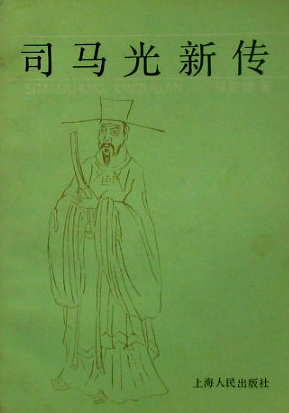 司马光新传
SIMAGUANG XINZHUAN
上海人民出版社